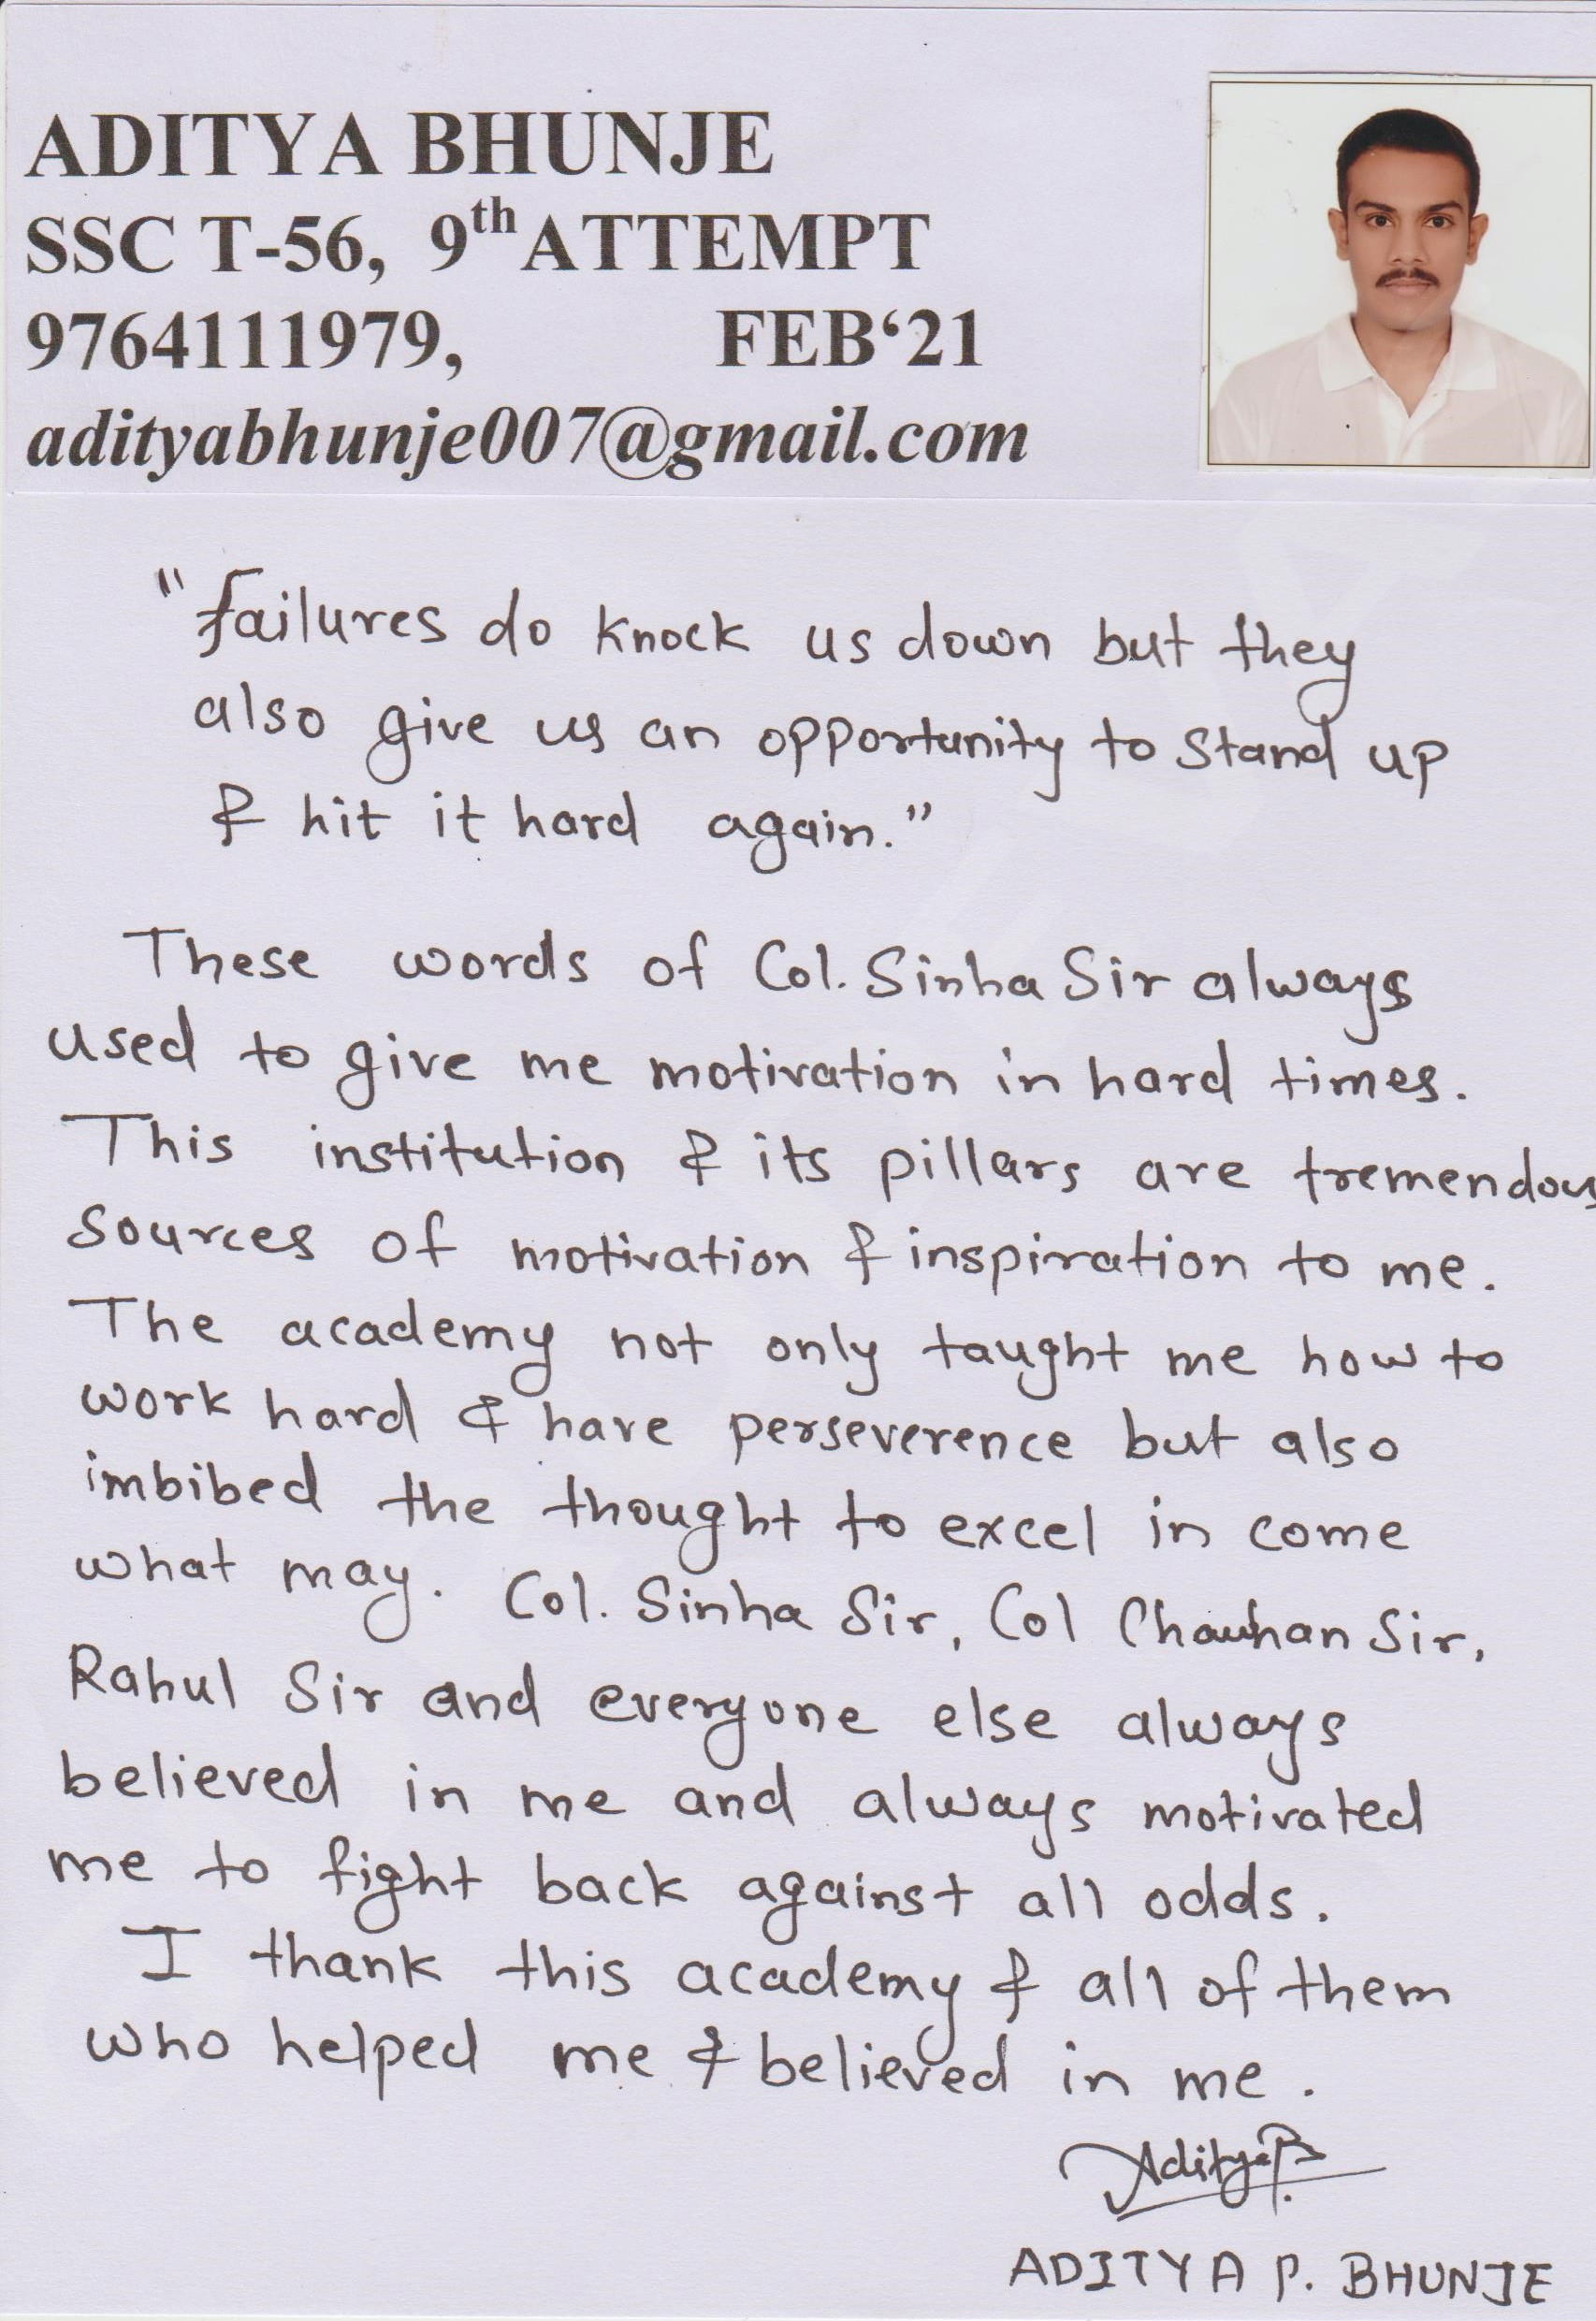 ADITYA BHUNJE
SSC T-56, 9th ATTEMPT
9764111979, FEB‘21
adityabhunje007@gmail.com
"Failures do knock us down but they
also give us an opportunity to stand up
& hit it hard again."
These words of Col. Sinha Sir always
used to give me motivation in hard times.
This institution & its pillars are tremendous
sources of motivation & inspiration to me.
The academy not only taught me how to
work hard & have perseverence but also
imbibed the thought to excel in come
what may. Col. Sinha Sir, Col Chauhan Sir,
Rahul Sir and everyone else always
believed in me and always motivated
me to fight back against all odds.
I thank this academy & all of them
who helped me & believed in me.
AdityaB
ADITYA P. BHUNJE